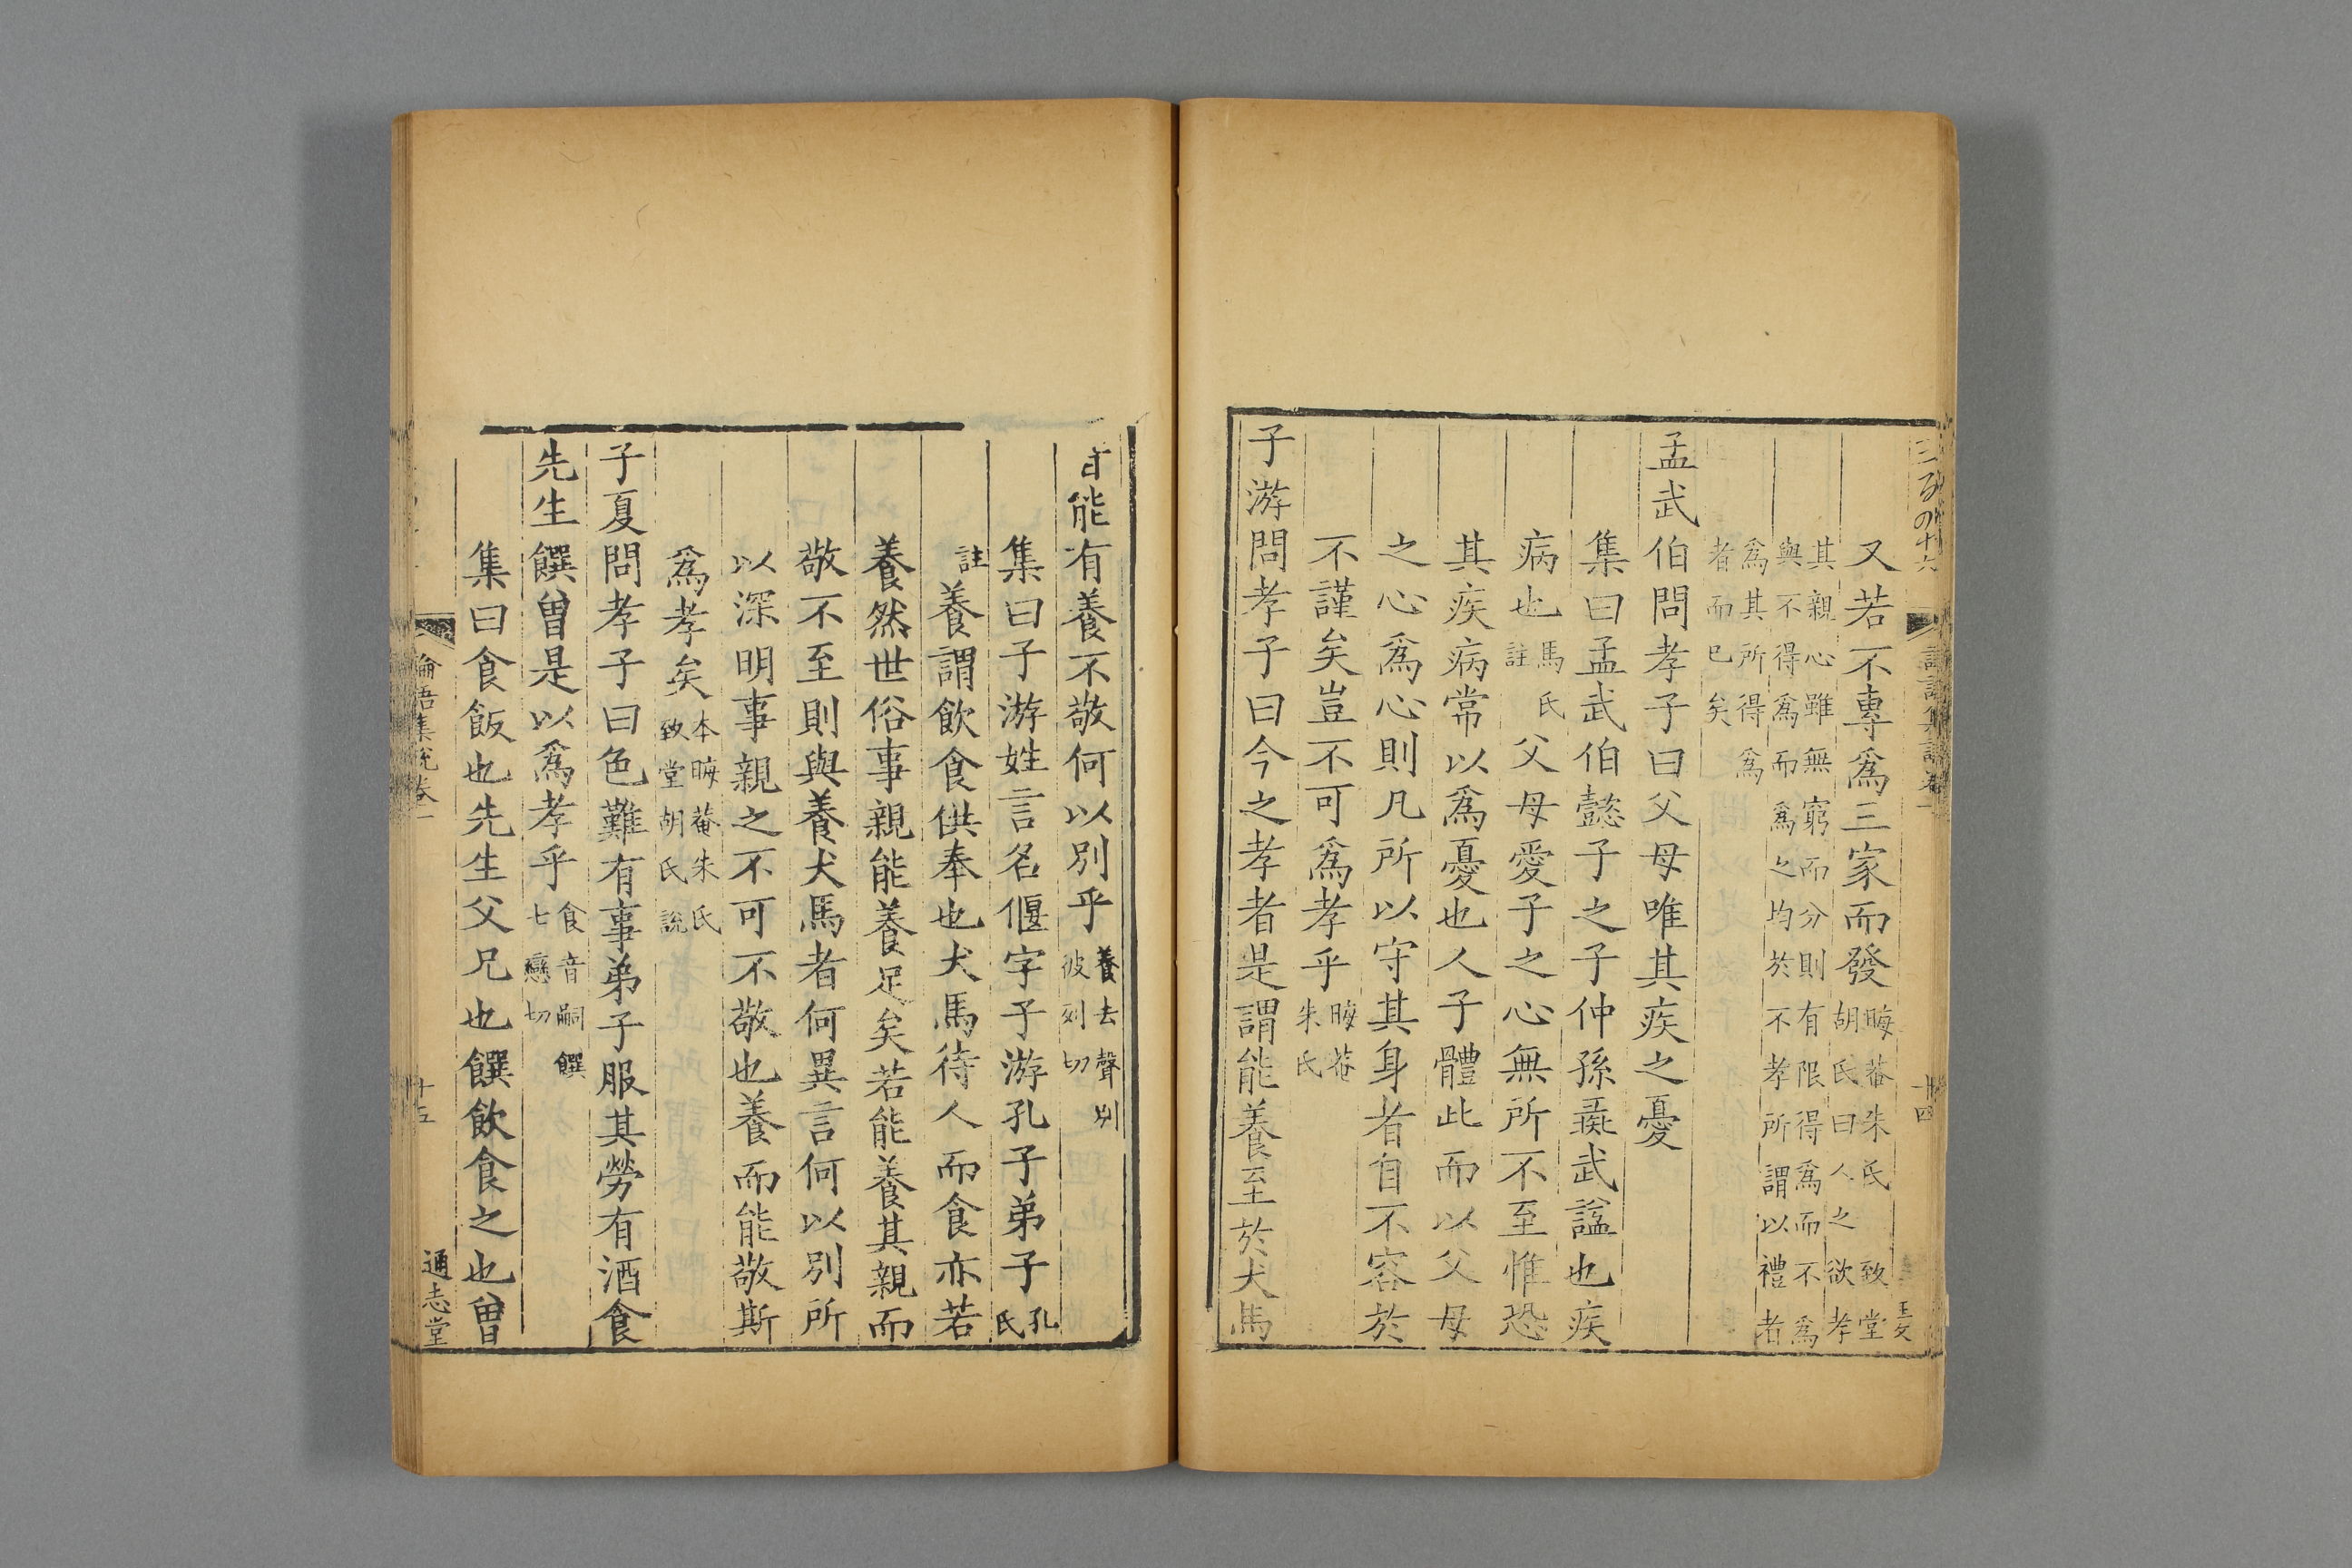 又若不專爲三家而發晦菴朱氏 致堂胡氏曰人之欲孝
其親心雖無窮而分則有限得爲而不爲
與不得爲而爲之均於不孝所謂以禮者
爲其所得爲
者而已矣
孟武伯問孝子曰父母唯其疾之憂
集曰孟武伯懿子之子仲孫彘武諡也疾
病也馬氏註父母愛子之心無所不至惟恐
其疾病常以爲憂也人子體此而以父母
之心爲心則凡所以守其身者自不容於
不謹矣豈不可爲孝乎晦菴朱氏
子游問孝子曰今之孝者是謂能養至於犬馬
皆能有養不敬何以別乎養去聲別彼列切
集曰子游姓言名偃字子游孔子弟子孔氏
註養謂飲食供奉也犬馬待人而食亦若
養然世俗事親能養足矣若能養其親而
敬不至則與養犬馬者何異言何以別所
以深明事親之不可不敬也養而能敬斯
爲孝矣本晦菴朱氏致堂胡氏說
子夏問孝子曰色難有事弟子服其勞有酒食
先生饌曾是以爲孝乎食音嗣饌七戀切
集曰食飯也先生父兄也饌飲食之也曾
論語集說卷一
十五
通志堂